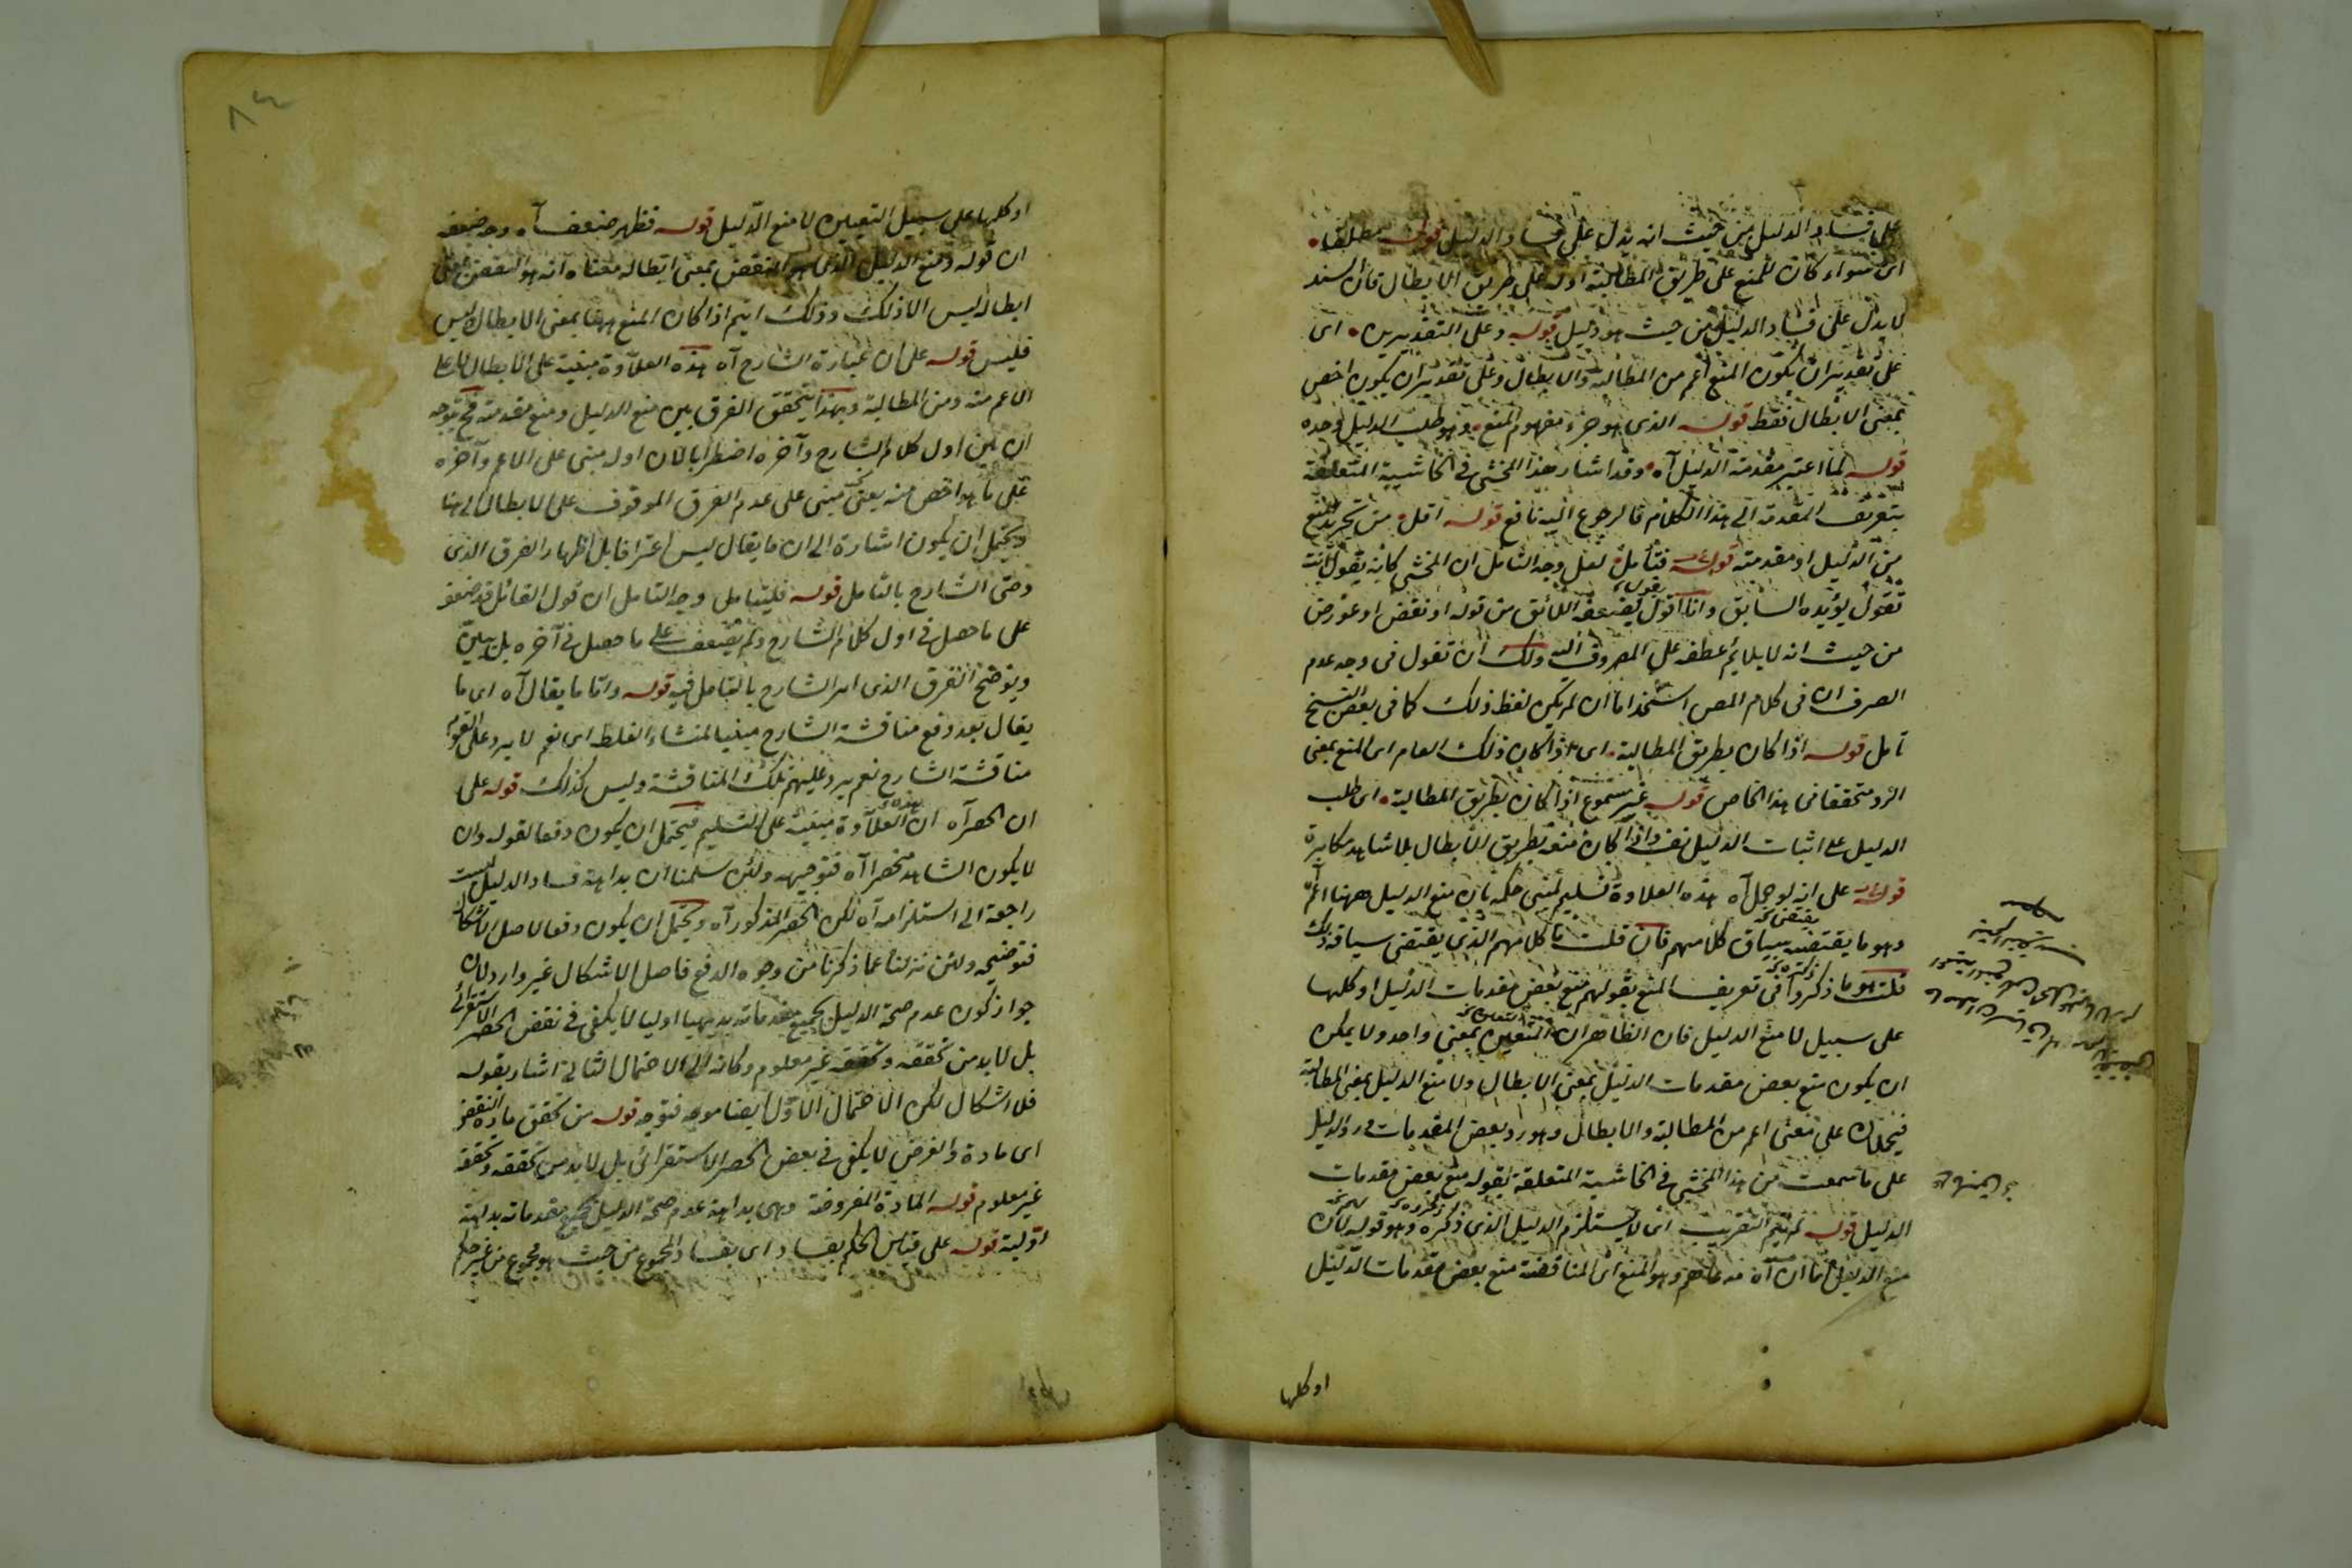 على فساد الدليل من حيث انه يدل على فساد الدليل قوله مطلقا
اى سواء كان المنع على طريق المطالبة اولا على طريق الابطال فان السند
لا يدل على فساد الدليل من حيث هو دليل قوله وعلى التقديرين اى
على تقدير ان يكون المنع اعم من المطالبة والابطال وعلى تقدير ان يكون اخص
بمعنى الابطال فقط قوله الذى هو جزء مفهوم المنع وهو طلب الدليل وحده
قوله لما اعتبر مقدمة الدليل آه وقد اشار هذا المحشى فى الحاشية المتعلقة
بتعريف المقدمة الى هذا الكلام فالرجوع اليه نافع قوله اقل من تحرير المنع
من الدليل او مقدمته قوله فتأمل لعل وجه التأمل ان المحشى كانه يقول انت
تقول يؤيده السابق وانا اقول يضعفه اللائق من قوله او نقض او عورض
من حيث انه لا يلايم عطفه على المصروف اليه ولك ان تقول فى وجه عدم
الصرف ان فى كلام المص استخداما ان لم يكن لفظ ذلك كما فى بعض النسخ
تأمل قوله اذا كان بطريق المطالبة اى اذا كان ذلك العام اى المنع بمعنى
الرد متحققا فى هذا الخاص قوله غير مسموع اذا كان بطريق المطالبة اى طلب
الدليل على اثبات الدليل نفسه واذا كان منعه بطريق الابطال بلا شاهد مكابرة
قوله على انه لو حمل آه هذه العلاوة تسليم لمبنى حكمه بان منع الدليل ههنا اعم
وهو ما يقتضيه سياق كلامهم فان قلت ما كلامهم الذى يقتضى سياقه ذلك
قلت هو ما ذكروا فى تعريف المنع بقولهم منع بعض مقدمات الدليل او كلها
على سبيل لا منع الدليل فان الظاهر ان التعيين بمعنى واحد ولا يمكن
ان يكون منع بعض مقدمات الدليل بمعنى الابطال ولا منع الدليل بمعنى المطالبة
فيحملان على معنى اعم من المطالبة والابطال وهو رد بعض المقدمات ورد الدليل
على ما سمعت من هذا المحشى فى الحاشية المتعلقة بقوله منع بعض مقدمات
الدليل قوله لم يتم التقريب اى لا يستلزم الدليل الذى ذكره وهو قوله لان
منع الدليل اما ان آه مدعاهم وهو المنع اى المناقضة منع بعض مقدمات الدليل
او كلها
او كلها على سبيل التعيين لا منع الدليل قوله فظهر ضعف آه وجه ضعفه
ان قوله ومنع الدليل الذى هو النقض بمعنى ابطاله معناه انه هو النقض اى
ابطاله ليس الا ذلك وذلك انما يتم اذا كان المنع ههنا بمعنى الابطال ليس
فليس قوله على ان عبارة الشارح آه هذه العلاوة مبنية على الابطال لا على
الاعم منه ومن المطالبة وبهذا يتحقق الفرق بين منع الدليل ومنع مقدمته فح يتوجه
ان بين اول كلام الشارح وآخره اضطرابا لان اوله مبنى على الاعم وآخره
على ما هو اخص منه يعنى مبنى على عدم الفرق الموقوف على الابطال الى هنا
ويحتمل ان يكون اشارة الى ان ما يقال ليس اعتراضا بل اظهار الفرق الذى
وصى الشارح بالتأمل قوله فليتأمل وجه التأمل ان قول القائل قد ضعف
على ما حصل فى اول كلام الشارح ولم يضعف على ما حصل فى آخره بل يبين
ويوضح الفرق الذى امر الشارح بالتأمل فيه قوله واما ما يقال آه اى ما
يقال بعد دفع مناقشة الشارح مبنيا لمنشاء الغلط اى نعم لا يرد على القوم
مناقشة الشارح نعم يرد عليهم تلك المناقشة وليس كذلك قوله على
ان الحصر آه ان العلاوة مبنية على التسليم فيحتمل ان يكون دفعا لقوله وان
لا يكون الشاهد منحصرا آه فتوجيهه ولئن سلمنا ان بداهة فساد الدليل ليست
راجعة الى استلزامه آه لكن الحصر المذكور آه ويحتمل ان يكون دفعا لاصل الاشكال
فتوضيحه ولئن نزلنا عما ذكرنا من وجوه الدفع فاصل الاشكال غير وارد لان
جواز كون عدم صحة الدليل بجميع مقدماته بديهيا اوليا لا يكفى فى نقض الحصر الاستقرائى
بل لا بد من تحققه وتحققه غير معلوم وكانه الى الاحتمال الثانى اشار بقوله
فلا اشكال لكن الاحتمال الاول ايضا موجه فتوجه قوله من تحقق مادة النقض
اى مادة والفرض لا يكفى فى بعض الحصر الاستقرائى بل لا بد من تحققه وتحققه
غير معلوم قوله المادة المفروضة وهى بداهة عدم صحة الدليل بجميع مقدماته بداهة
اولية قوله على قياس الحكم بفساد اى بفساد المجموع من حيث هو مجموع من غير حكم